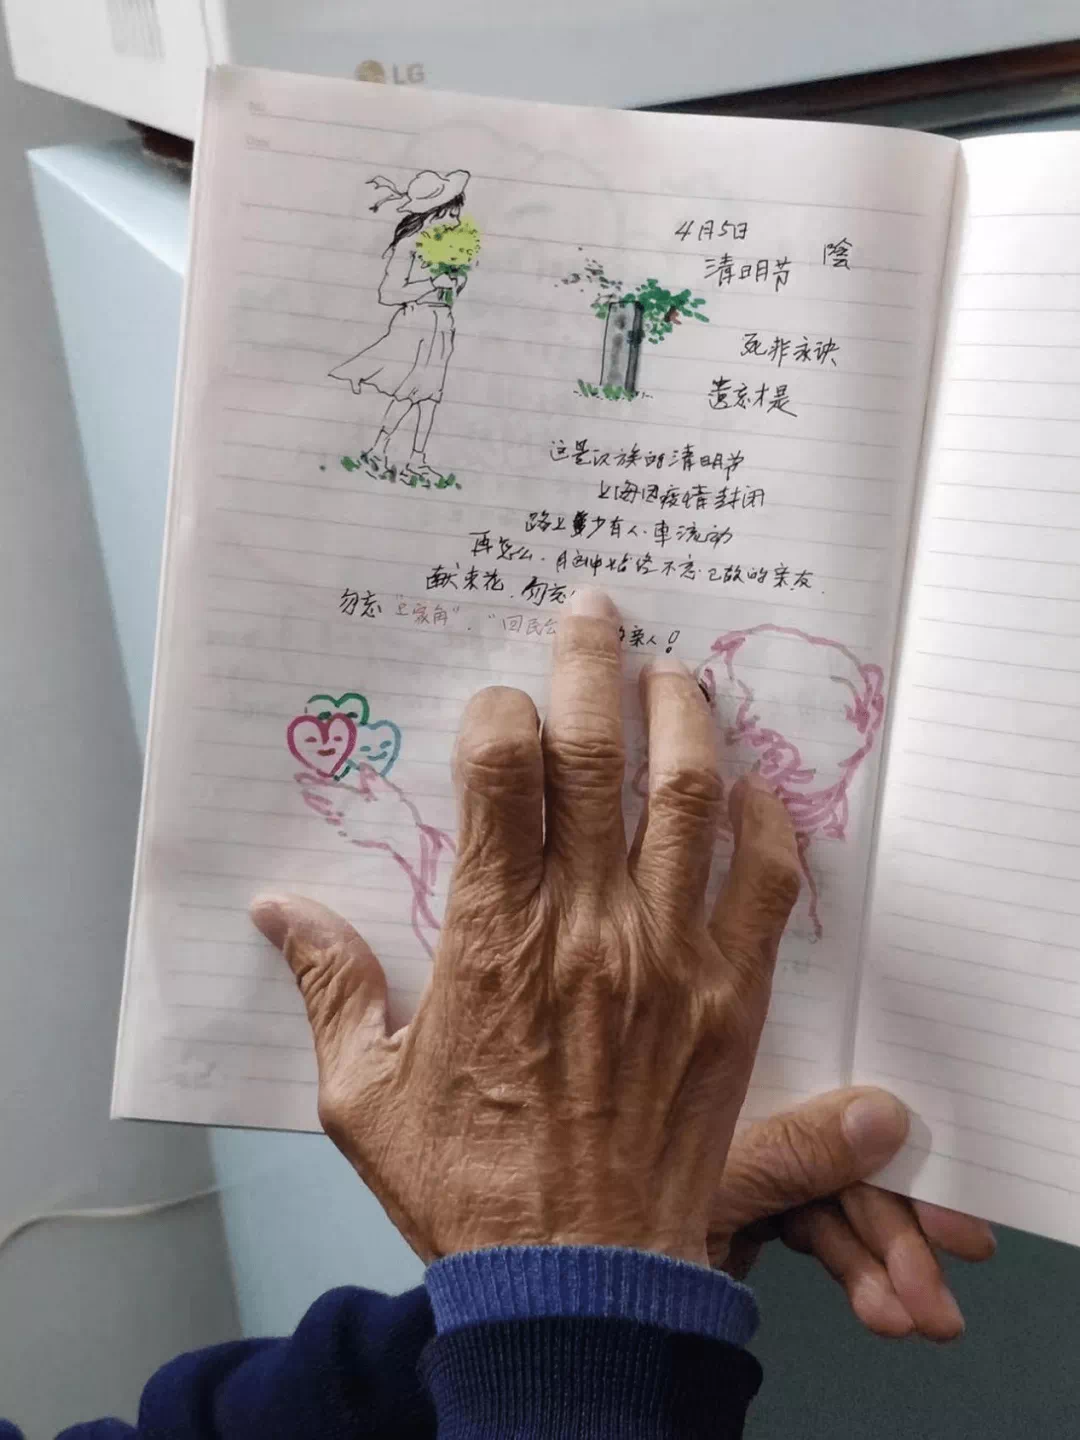 LG
No.
Date
4月5日 陰
清明节
死非永诀
遗忘才是
这是汉族的清明节
上海因疫情封闭
路上少有人.車流动
再怎么.脑中始终不忘已故的亲友.
献束花.勿忘
勿忘"家角"."回民公 的亲人!